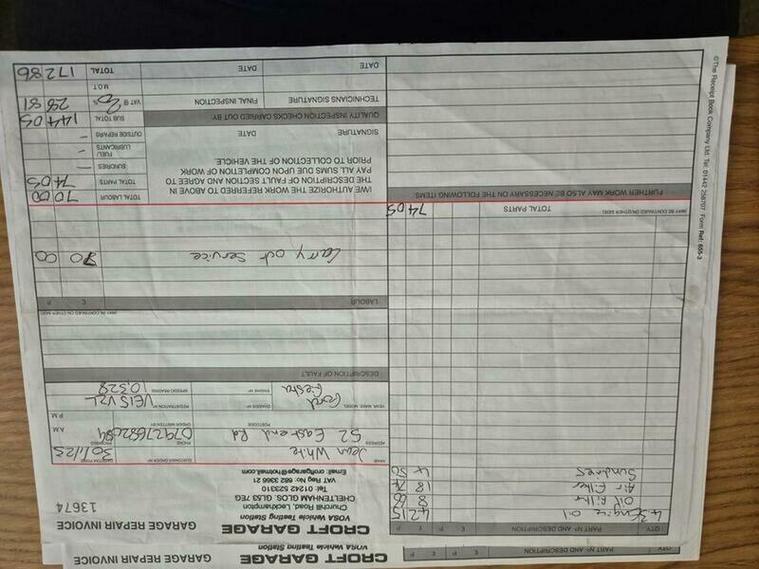 CROFT GARAGE
VOSA Vehicle Testing Station
GARAGE REPAIR INVOICE
QTY PART Nº AND DESCRIPTION £ P £ P
CROFT GARAGE
VOSA Vehicle Testing Station
Churchill Road, Leckhampton
CHELTENHAM GLOS. GL53 7EG
Tel: 01242 523310
VAT Reg No: 682 3366 21
Email: croftgarage@hotmail.com
GARAGE REPAIR INVOICE
13674
NAME Jean White
CUSTOMER ORDER Nº
DATE/TAX POINT 30/1/23
ADDRESS 52 Eastend Rd
PHONE
POSTCODE
ORDER WRITTEN BY
A.M.
P.M.
YEAR, MAKE, MODEL Ford Fiesta
CHASSIS Nº
REGISTRATION Nº VE15 VZL
ENGINE Nº
SPEEDO READING 10,328
DESCRIPTION OF FAULT
(MAY BE CONTINUED ON OTHER SIDE)
LABOUR £ P
Carry out service 70 00
TOTAL LABOUR 70 00
TOTAL PARTS 74 05
SUNDRIES —
FUEL/LUBRICANTS —
OUTSIDE REPAIRS —
SUB TOTAL 144 05
VAT @ 20% 28 81
M.O.T.
TOTAL 172 86
I/WE AUTHORIZE THE WORK REFERRED TO ABOVE IN
THE DESCRIPTION OF FAULT SECTION AND AGREE TO
PAY ALL SUMS DUE UPON COMPLETION OF WORK
PRIOR TO COLLECTION OF THE VEHICLE.
SIGNATURE DATE
QUALITY INSPECTION CHECKS CARRIED OUT BY:
TECHNICIANS SIGNATURE FINAL INSPECTION
DATE DATE
QTY PART Nº AND DESCRIPTION £ P £ P
4.3 Engine oil 42 15
Oil Filter
Air Filter
Sundries 4 50
(MAY BE CONTINUED ON OTHER SIDE) TOTAL PARTS 74 05
FURTHER WORK MAY ALSO BE NECESSARY ON THE FOLLOWING ITEMS
©The Receipt Book Company Ltd. Tel: 01442 258707 Form Ref: 655-3